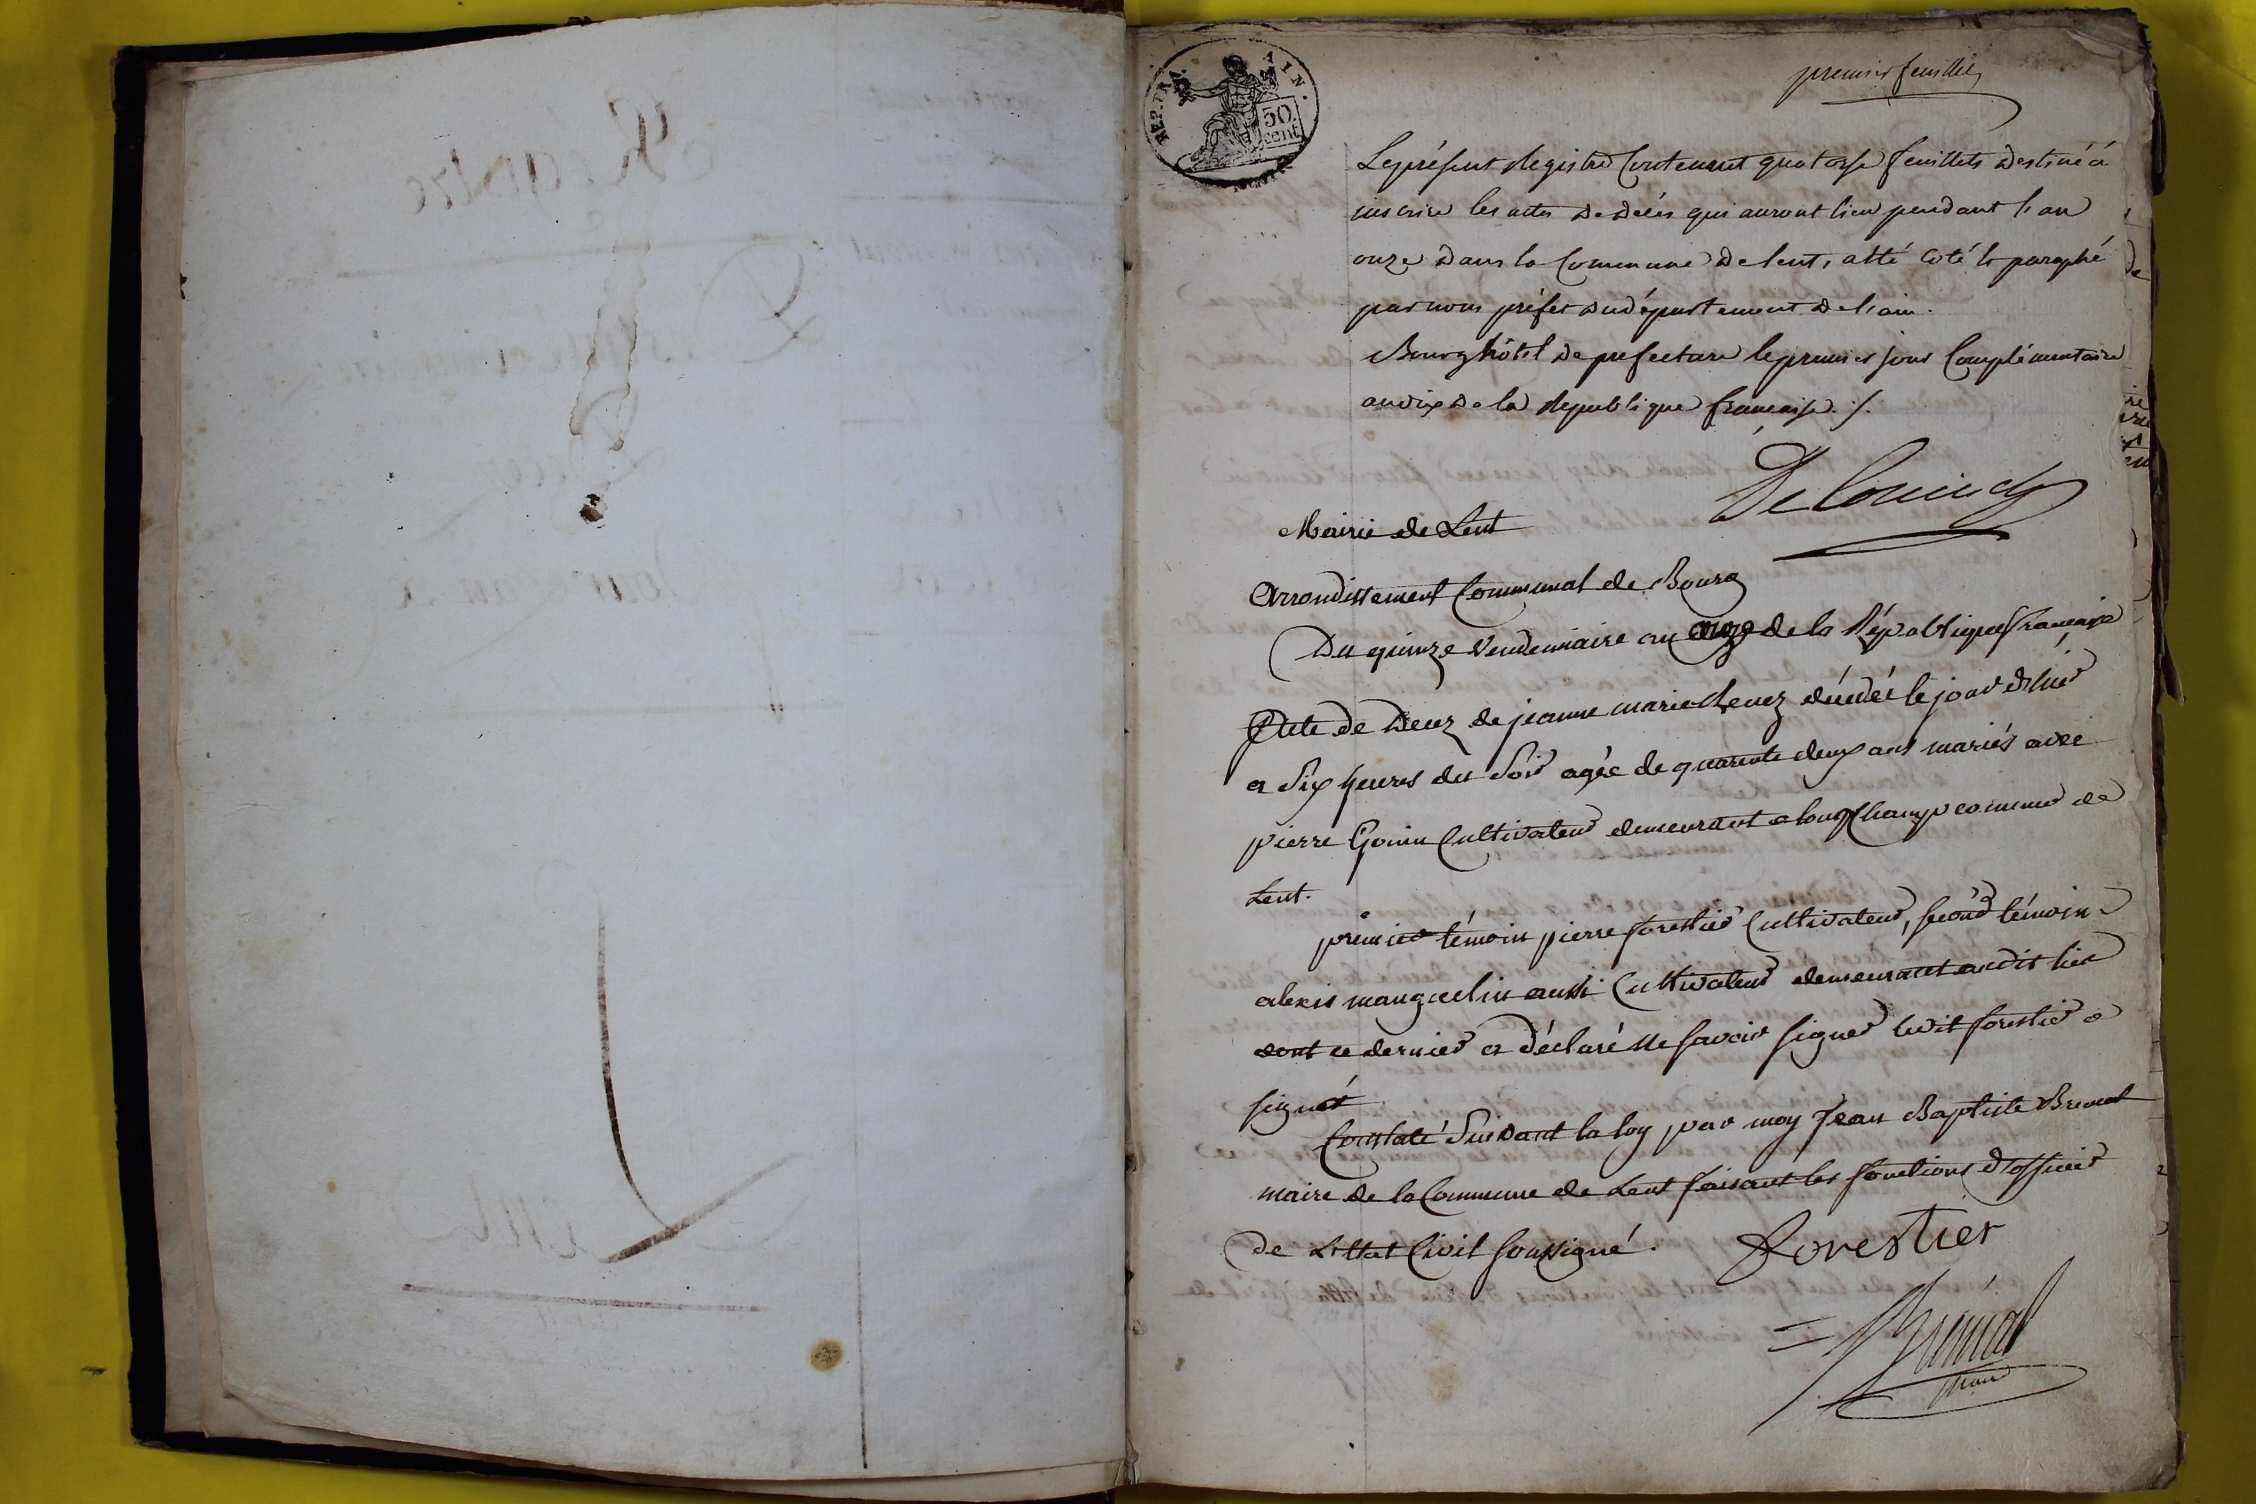 REP. FRA. AIN.
50 cent
premier feuillet
Le présent Registre Contenant quatorze feuillets destiné à
inscrire les actes de décès qui auront lieu pendant l'an
onze dans la Commune de lent, a été coté & paraphé
par nous préfet du département de l'ain.
Bourg hôtel de prefecture le premier jour Complémentaire
an dix de la Republique francaise ./.
Mairie de Lent
Arrondissement Communal de Bourg
Du quinze Vendemiaire an onze de la République française
Acte de Decez de jeanne marie décédée le jour d'hier
a Six heures du Soir agée de quarante deux ans mariés avec
pierre Gonin Cultivateur demeurant a longchamp commune de
Lent.
premier témoin pierre forestier Cultivateur, second témoin
alexis manguelin aussi Cultivateur demeurant audit lieu
dont ce dernier a déclaré ne savoir signer ledit forestier a
signé
Constaté Suivant la loy par moy Jean Baptiste Brunat
maire de la Commune de Lent faisant les fonctions d'officier
de L'Etat Civil soussigné.
Forestier